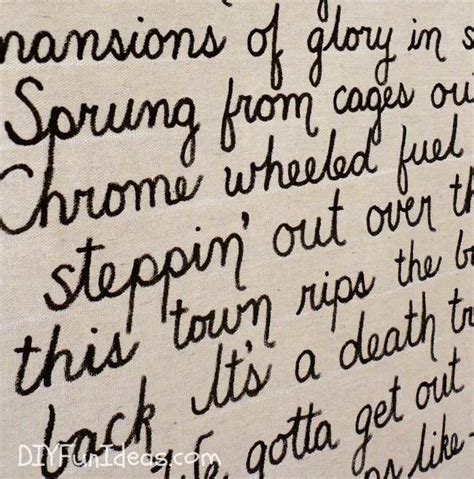 mansions of glory in s
Sprung from cages ou
Chrome wheeled fuel
steppin' out over th
this town rips the b
back It's a death tr
We gotta get out
as like
DIYFunIdeas.com